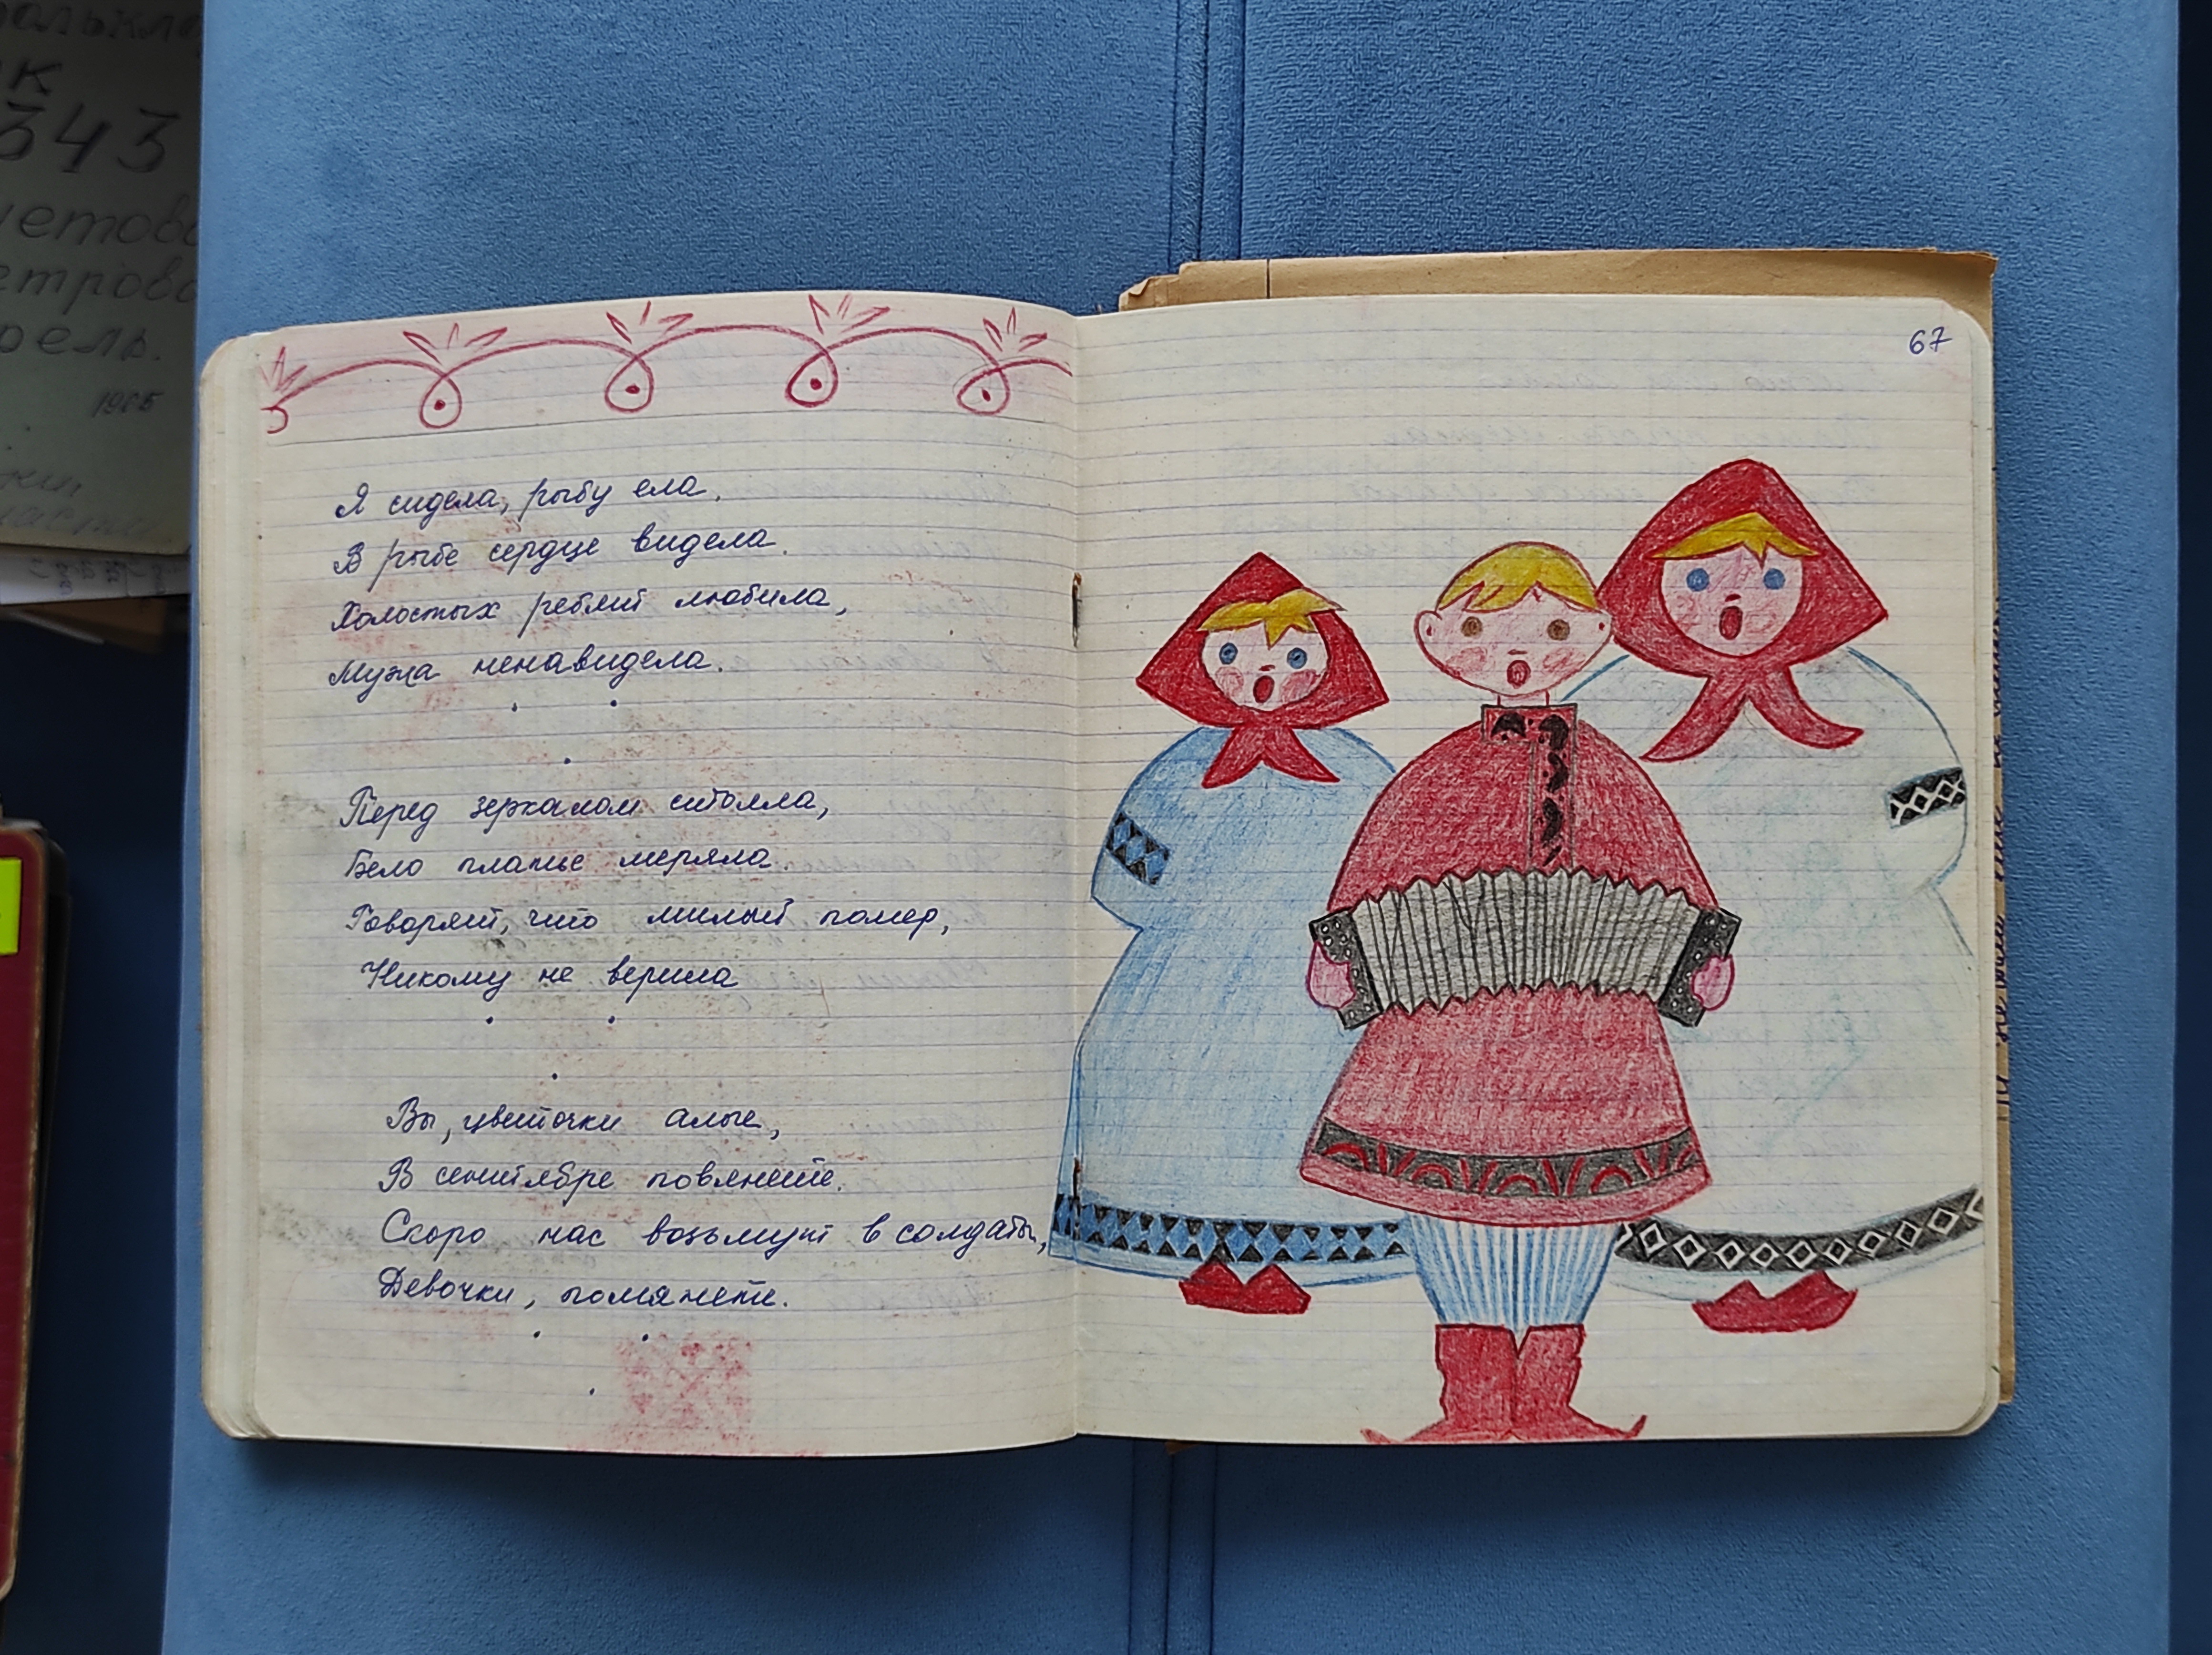 343
1985
67
Я сидела, рыбу ела.
В рыбе сердце видела.
Холостых ребят любила,
Мужа ненавидела.
Перед зеркалом стояла,
Бело платье меряла.
Говорят, что милый помер,
Никому не верила
Вы, цветочки алые,
В сентябре повянете.
Скоро нас возьмут в солдаты,
Девочки, помянете.